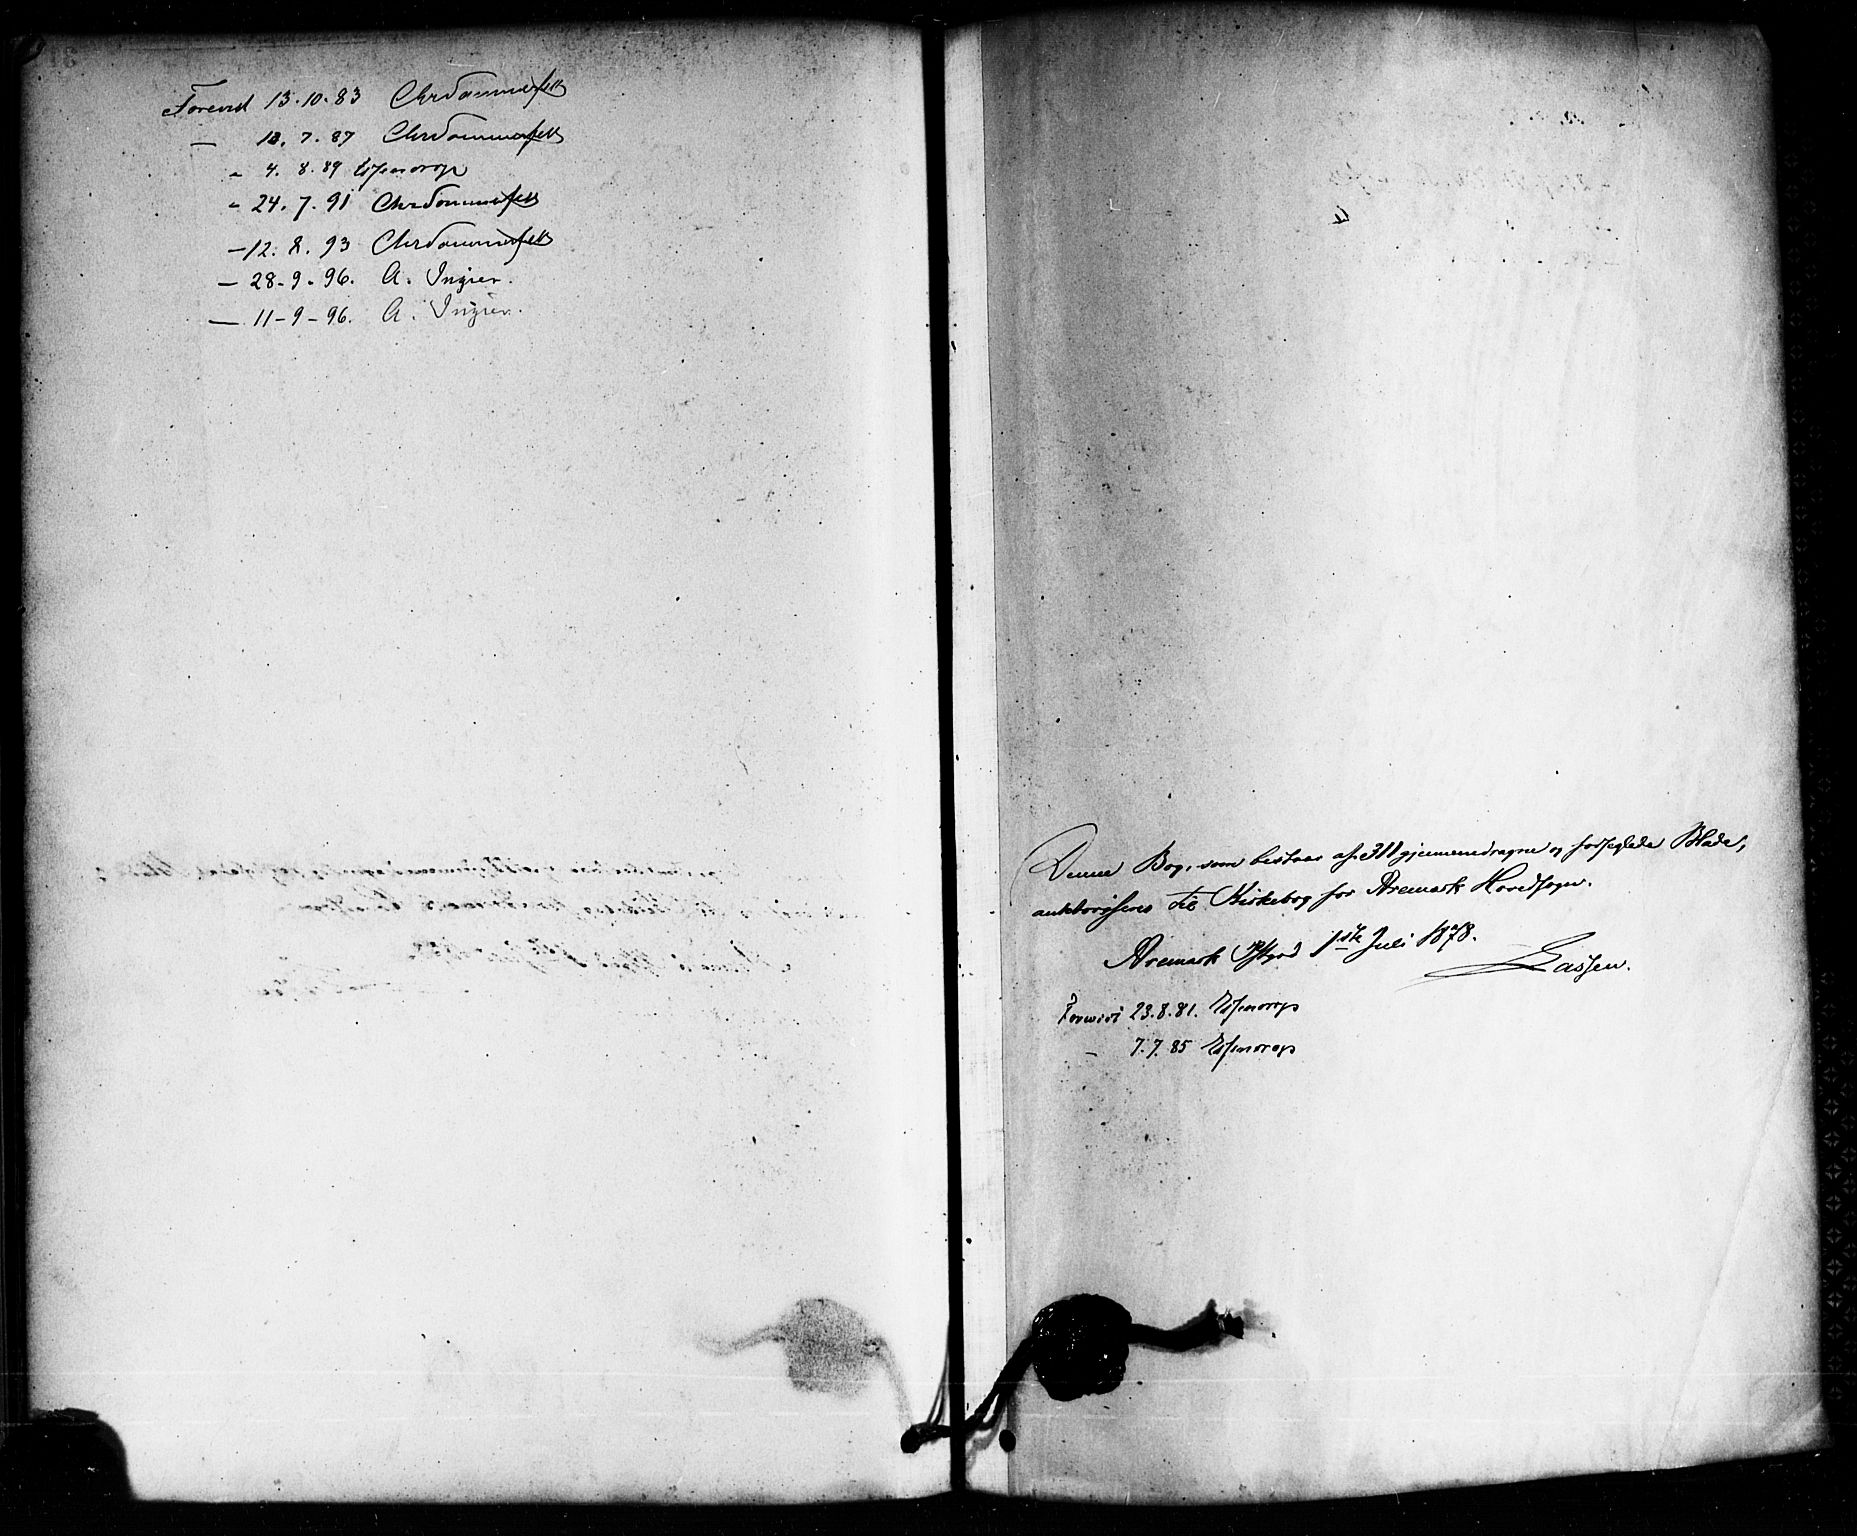 Forevist 13.10.83 Chr Sommerfelt
— 12.7.87 Chr Sommerfelt
" 4.8.89 Essendrop
" 24.7.91 Chr Sommerfelt
— 12.8.93 Chr Sommerfelt
— 28-9-96. A. Ingier.
— 11-9-96. A. Ingier.
Denne Bog, som bestaar af 311 gjennemdragne og forseglede Blade,
authoriseres til Kirkebog for Aremark Hovedsogn.
Aremark Pstgrd 1ste Juli 1878.
Lassen.
Forevist 23.8.81. Essendrop
— 7.7.85 Essendrop